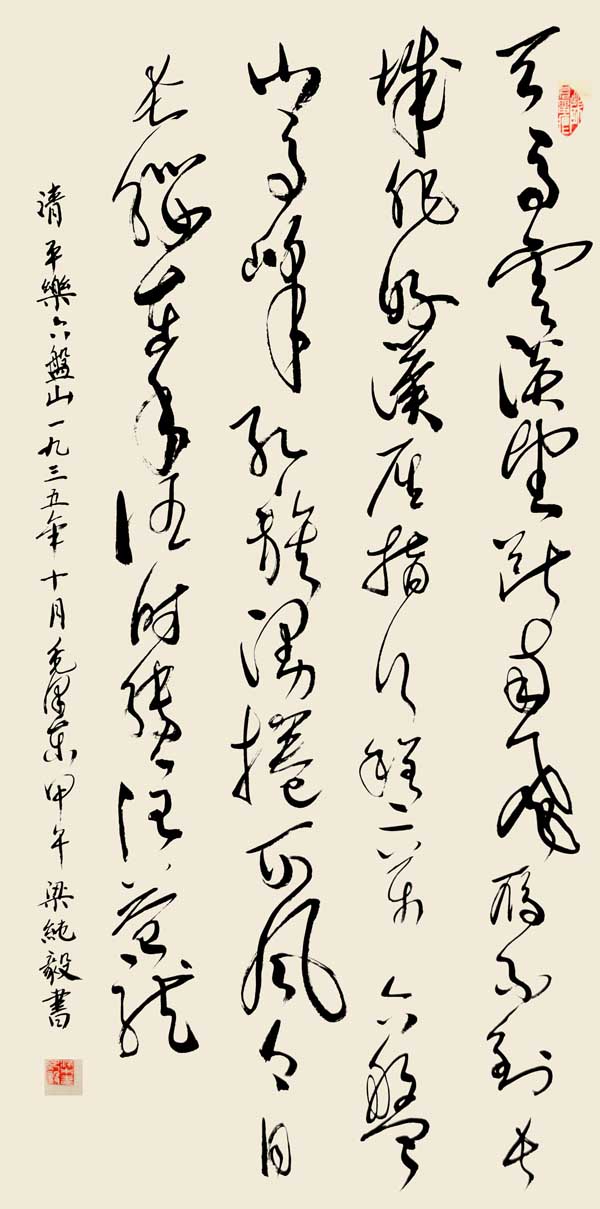 天高雲淡望斷南飛雁不到長
城非好漢屈指行程二萬六盤
山高峰紅旗漫捲西風今日
長纓在手何時縛住蒼龍
清平樂六盤山一九三五年十月毛澤東甲午梁純毅書